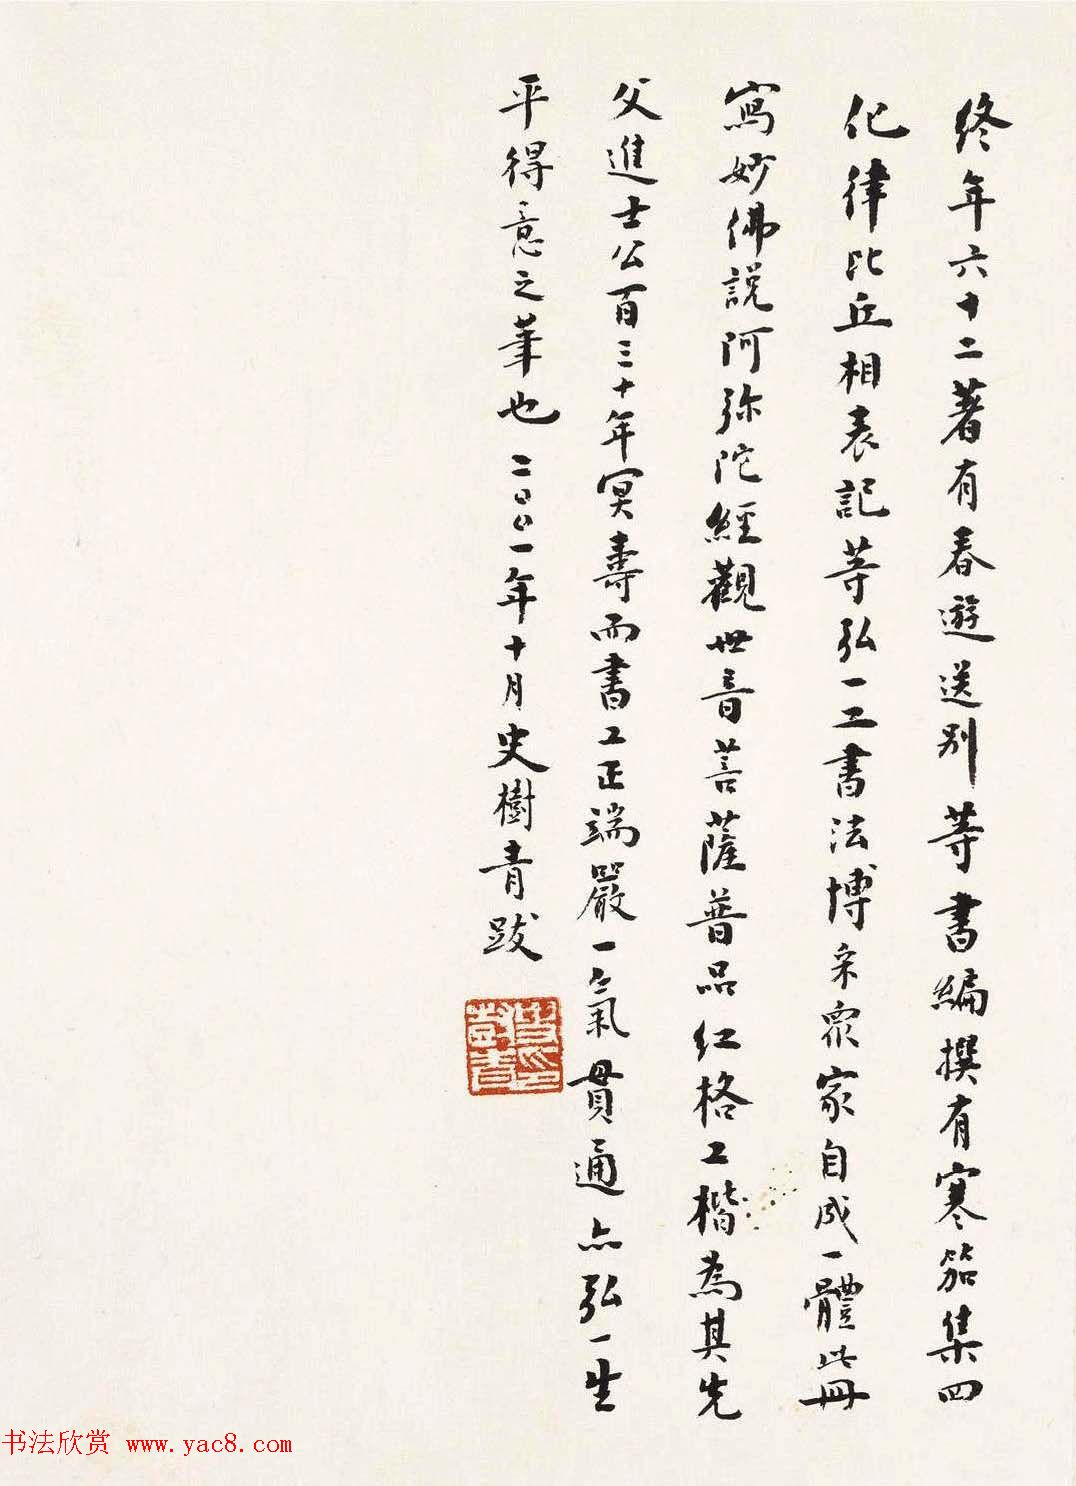 终年六十二著有春遊送别等書編撰有寒笳集四
化律比丘相表記等弘一工書法博采眾家自成一體此冊
寫妙佛説阿弥陀經觀世音菩薩普品红格工楷為其先
父進士公百三十年冥壽而書工正端嚴一氣貫通亦弘一生
平得意之筆也二〇〇一年十月史樹青跋
史樹青印
书法欣赏 www.yac8.com